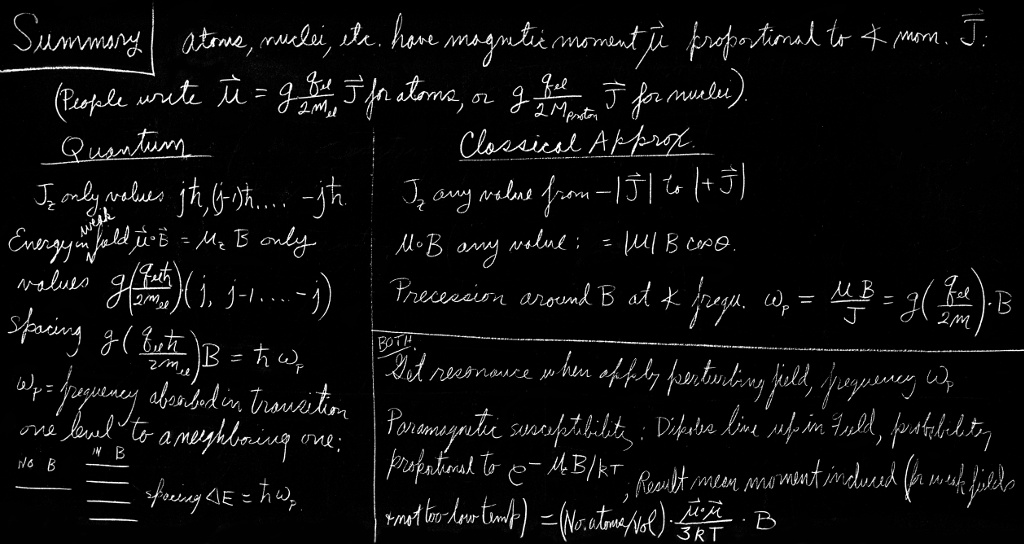 Summary
atoms, nuclei, etc. have magnetic moment, μ⃗ proportional to ∡ mom. J⃗:
(People write μ⃗ = g q_el/2m_el J⃗ for atoms, or g q_el/2M_proton J⃗ for nuclei).
Quantum
J_z only values jħ, (j-1)ħ, .... -jħ.
Energy in weak field, μ⃗∘B⃗ = μ_z B only
values g(q_el ħ/2m_el)(j, j-1.... -j)
Spacing g(q_el ħ/2m_el)B = ħω_p
ω_p = frequency absorbed in transition
one level to a neighboring one:
NO B
IN B
spacing ΔE = ħω_p.
Classical Approx.
J_z any value from -|J⃗| to |+J⃗|
μ∘B any value: = |μ| B cosθ.
Precession around B at ∡ frequ. ω_p = μB/J = g(q_el/2m)·B
BOTH
Get resonance when apply perturbing field, frequency ω_p
Paramagnetic susceptibility: Dipoles line up in Field, probability
proportional to e^-μ_z B/kT, Result mean moment induced (for weak fields
+ not too-low temp) = (No. atoms/Vol)·μ⃗∘μ⃗/3kT · B